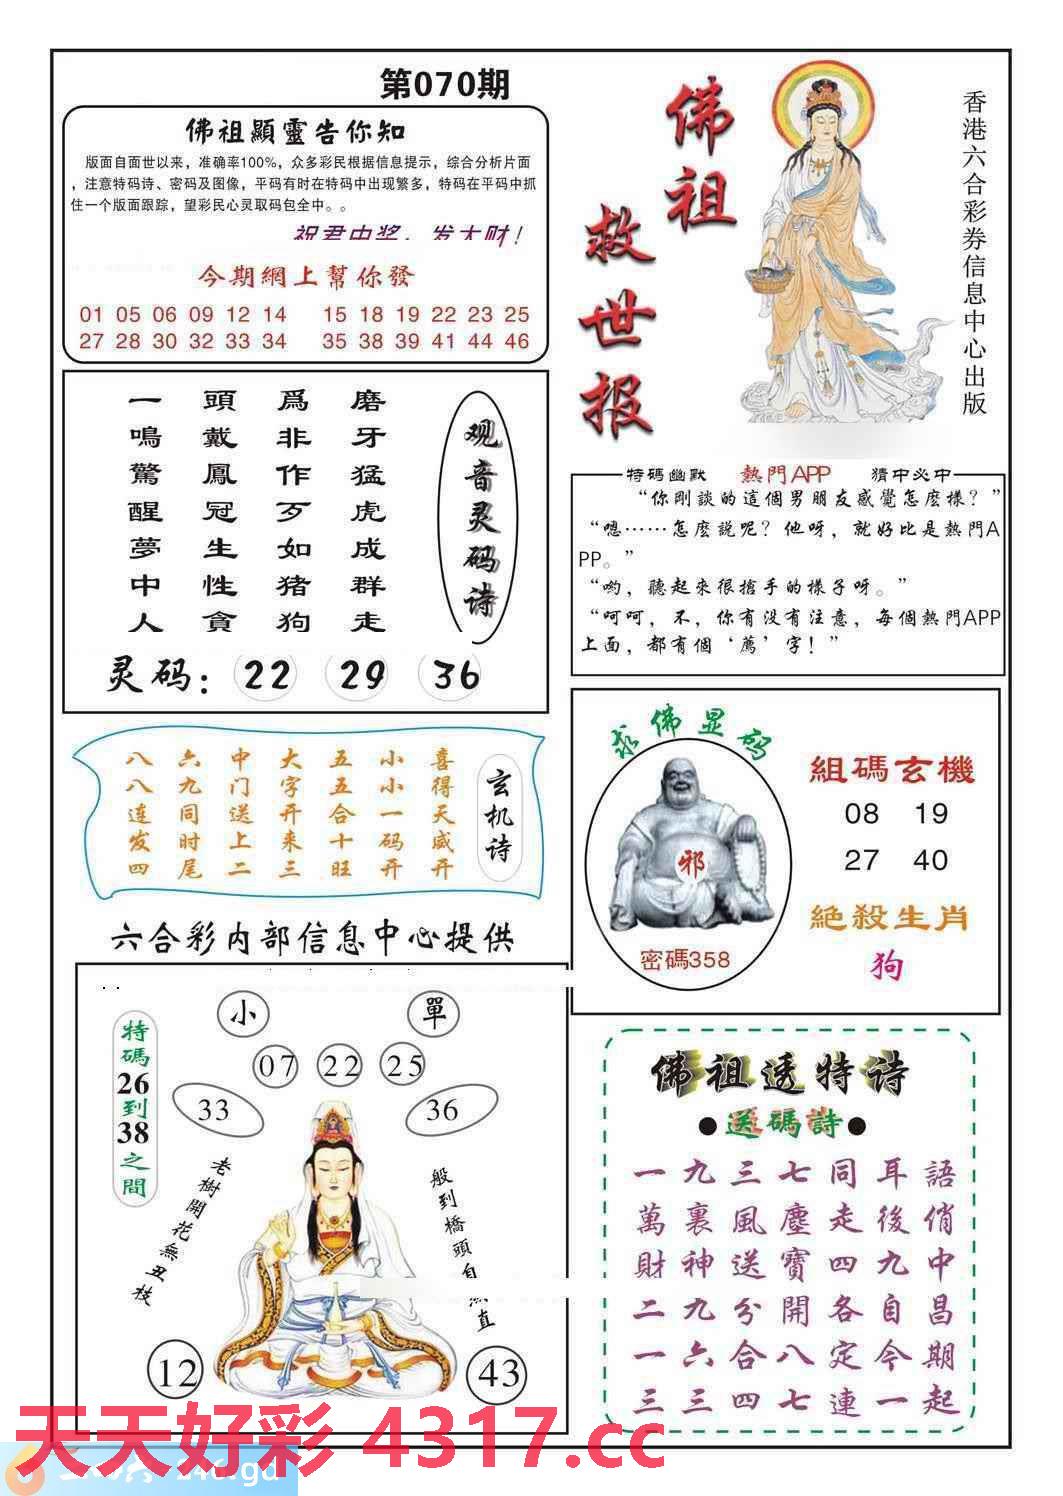 第070期
佛祖顯靈告你知
版面自面世以来，准确率100%，众多彩民根据信息提示，综合分析片面
，注意特码诗、密码及图像，平码有时在特码中出现繁多，特码在平码中抓
住一个版面跟踪，望彩民心灵取码包全中。。
祝君中奖，发大财！
今期網上幫你發
01 05 06 09 12 14 15 18 19 22 23 25
27 28 30 32 33 34 35 38 39 41 44 46
佛祖
救世报
香港六合彩券信息中心出版
观音灵码诗
磨牙猛虎成群走
爲非作歹如猪狗
頭戴鳳冠生性貪
一鳴驚醒夢中人
灵码：22 29 36
特碼幽默 熱門APP 猜中必中
“你剛談的這個男朋友感覺怎麽樣？”
“嗯……怎麽說呢？他呀，就好比是熱門A
PP。”
“喲，聽起來很搶手的樣子呀。”
“呵呵，不，你有没有注意，每個熱門APP
上面，都有個‘薦’字！”
玄机诗
喜得天威开
小小一码开
五五合十旺
大字开来三
中门送上二
六九同时尾
八八连发四
求佛显码
邪
密碼358
組碼玄機
08 19
27 40
絶殺生肖
狗
六合彩内部信息中心提供
特碼26到38之間
小 單
07 22 25
33 36
老樹開花無丑枝
般到橋頭自 直
12 43
佛祖透特诗
●送碼詩●
一九三七同耳語
萬裏風塵走後俏
財神送寶四九中
二九分開各自昌
一六合八定今期
三三四七連一起
天天好彩 4317.cc
246.gd